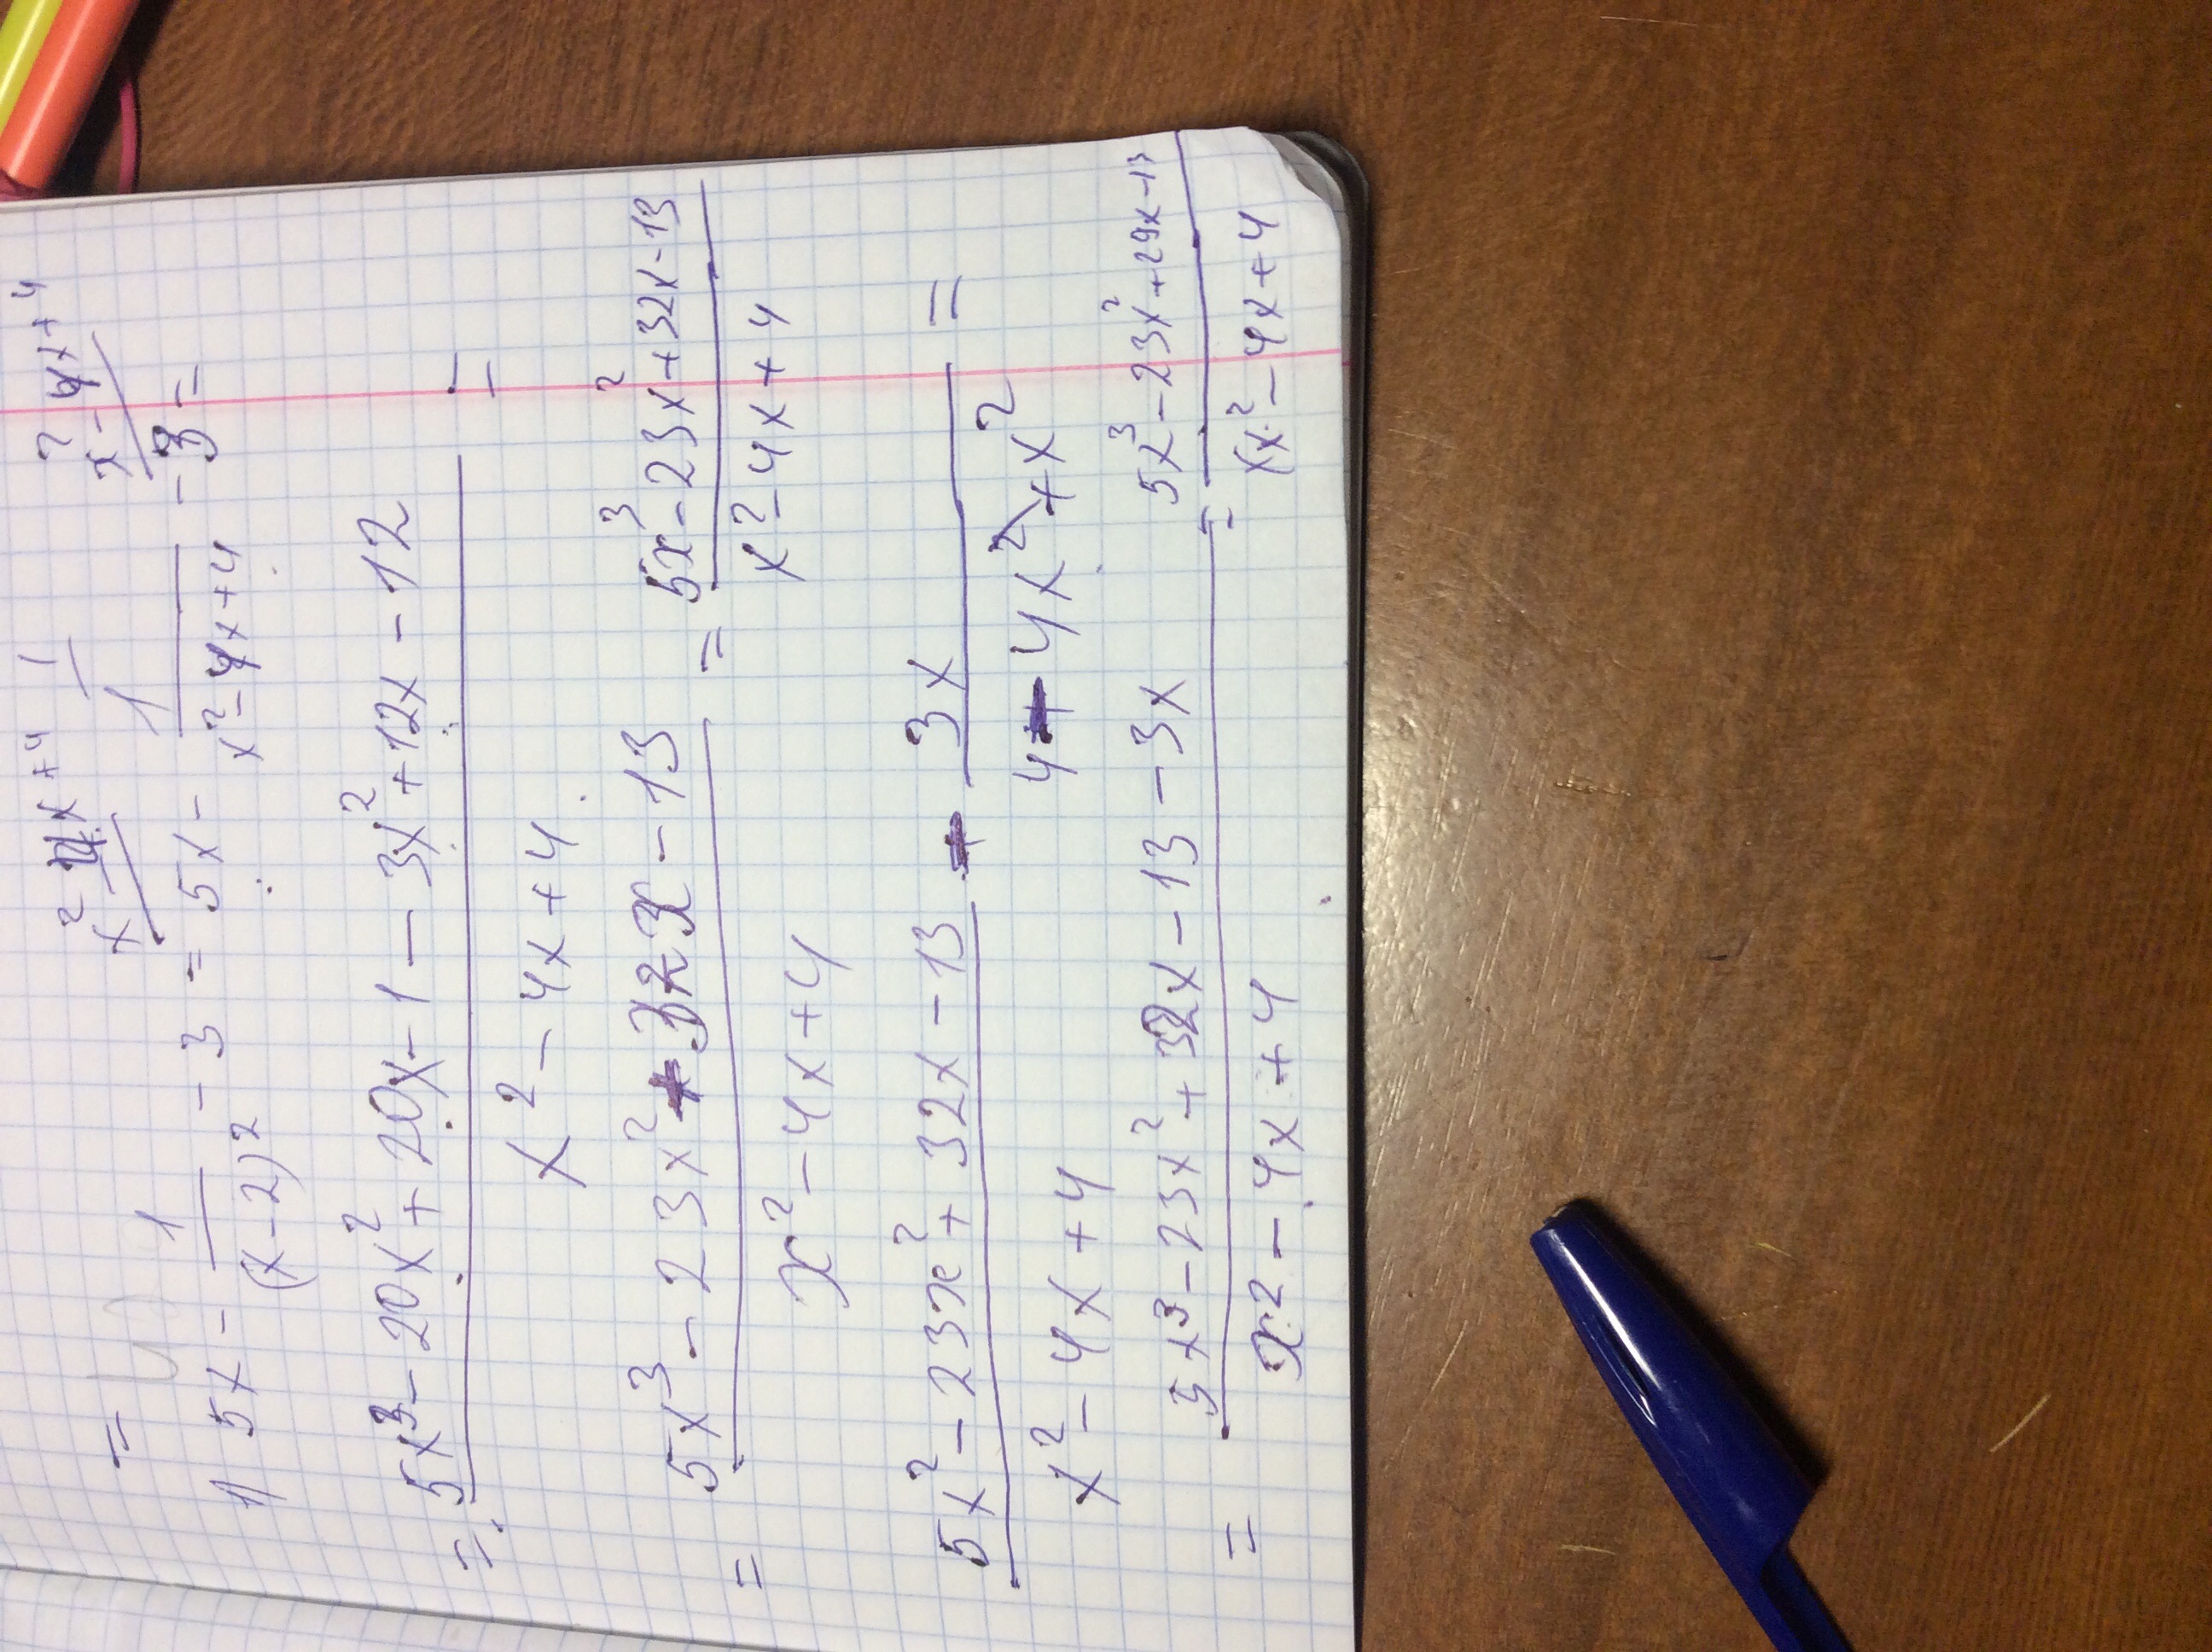 =
x² - 4x + 4 / 1 x² - 4x + 4 /
1) 5x - 1/(x - 2)² - 3 = 5x - 1/(x² - 4x + 4) - 3 =
= (5x³ - 20x² + 20x - 1 - 3x² + 12x - 12)/(x² - 4x + 4) =
= (5x³ - 23x² + 32x - 13)/(x² - 4x + 4) = (5x³ - 23x² + 32x - 13)/(x² - 4x + 4)
(5x² - 23x² + 32x - 13)/(x² - 4x + 4) - 3x/(4 - 4x² + x²) =
= (5x³ - 23x² + 32x - 13 - 3x)/(x² - 4x + 4) = (5x³ - 23x² + 29x - 13)/(x² - 4x + 4)